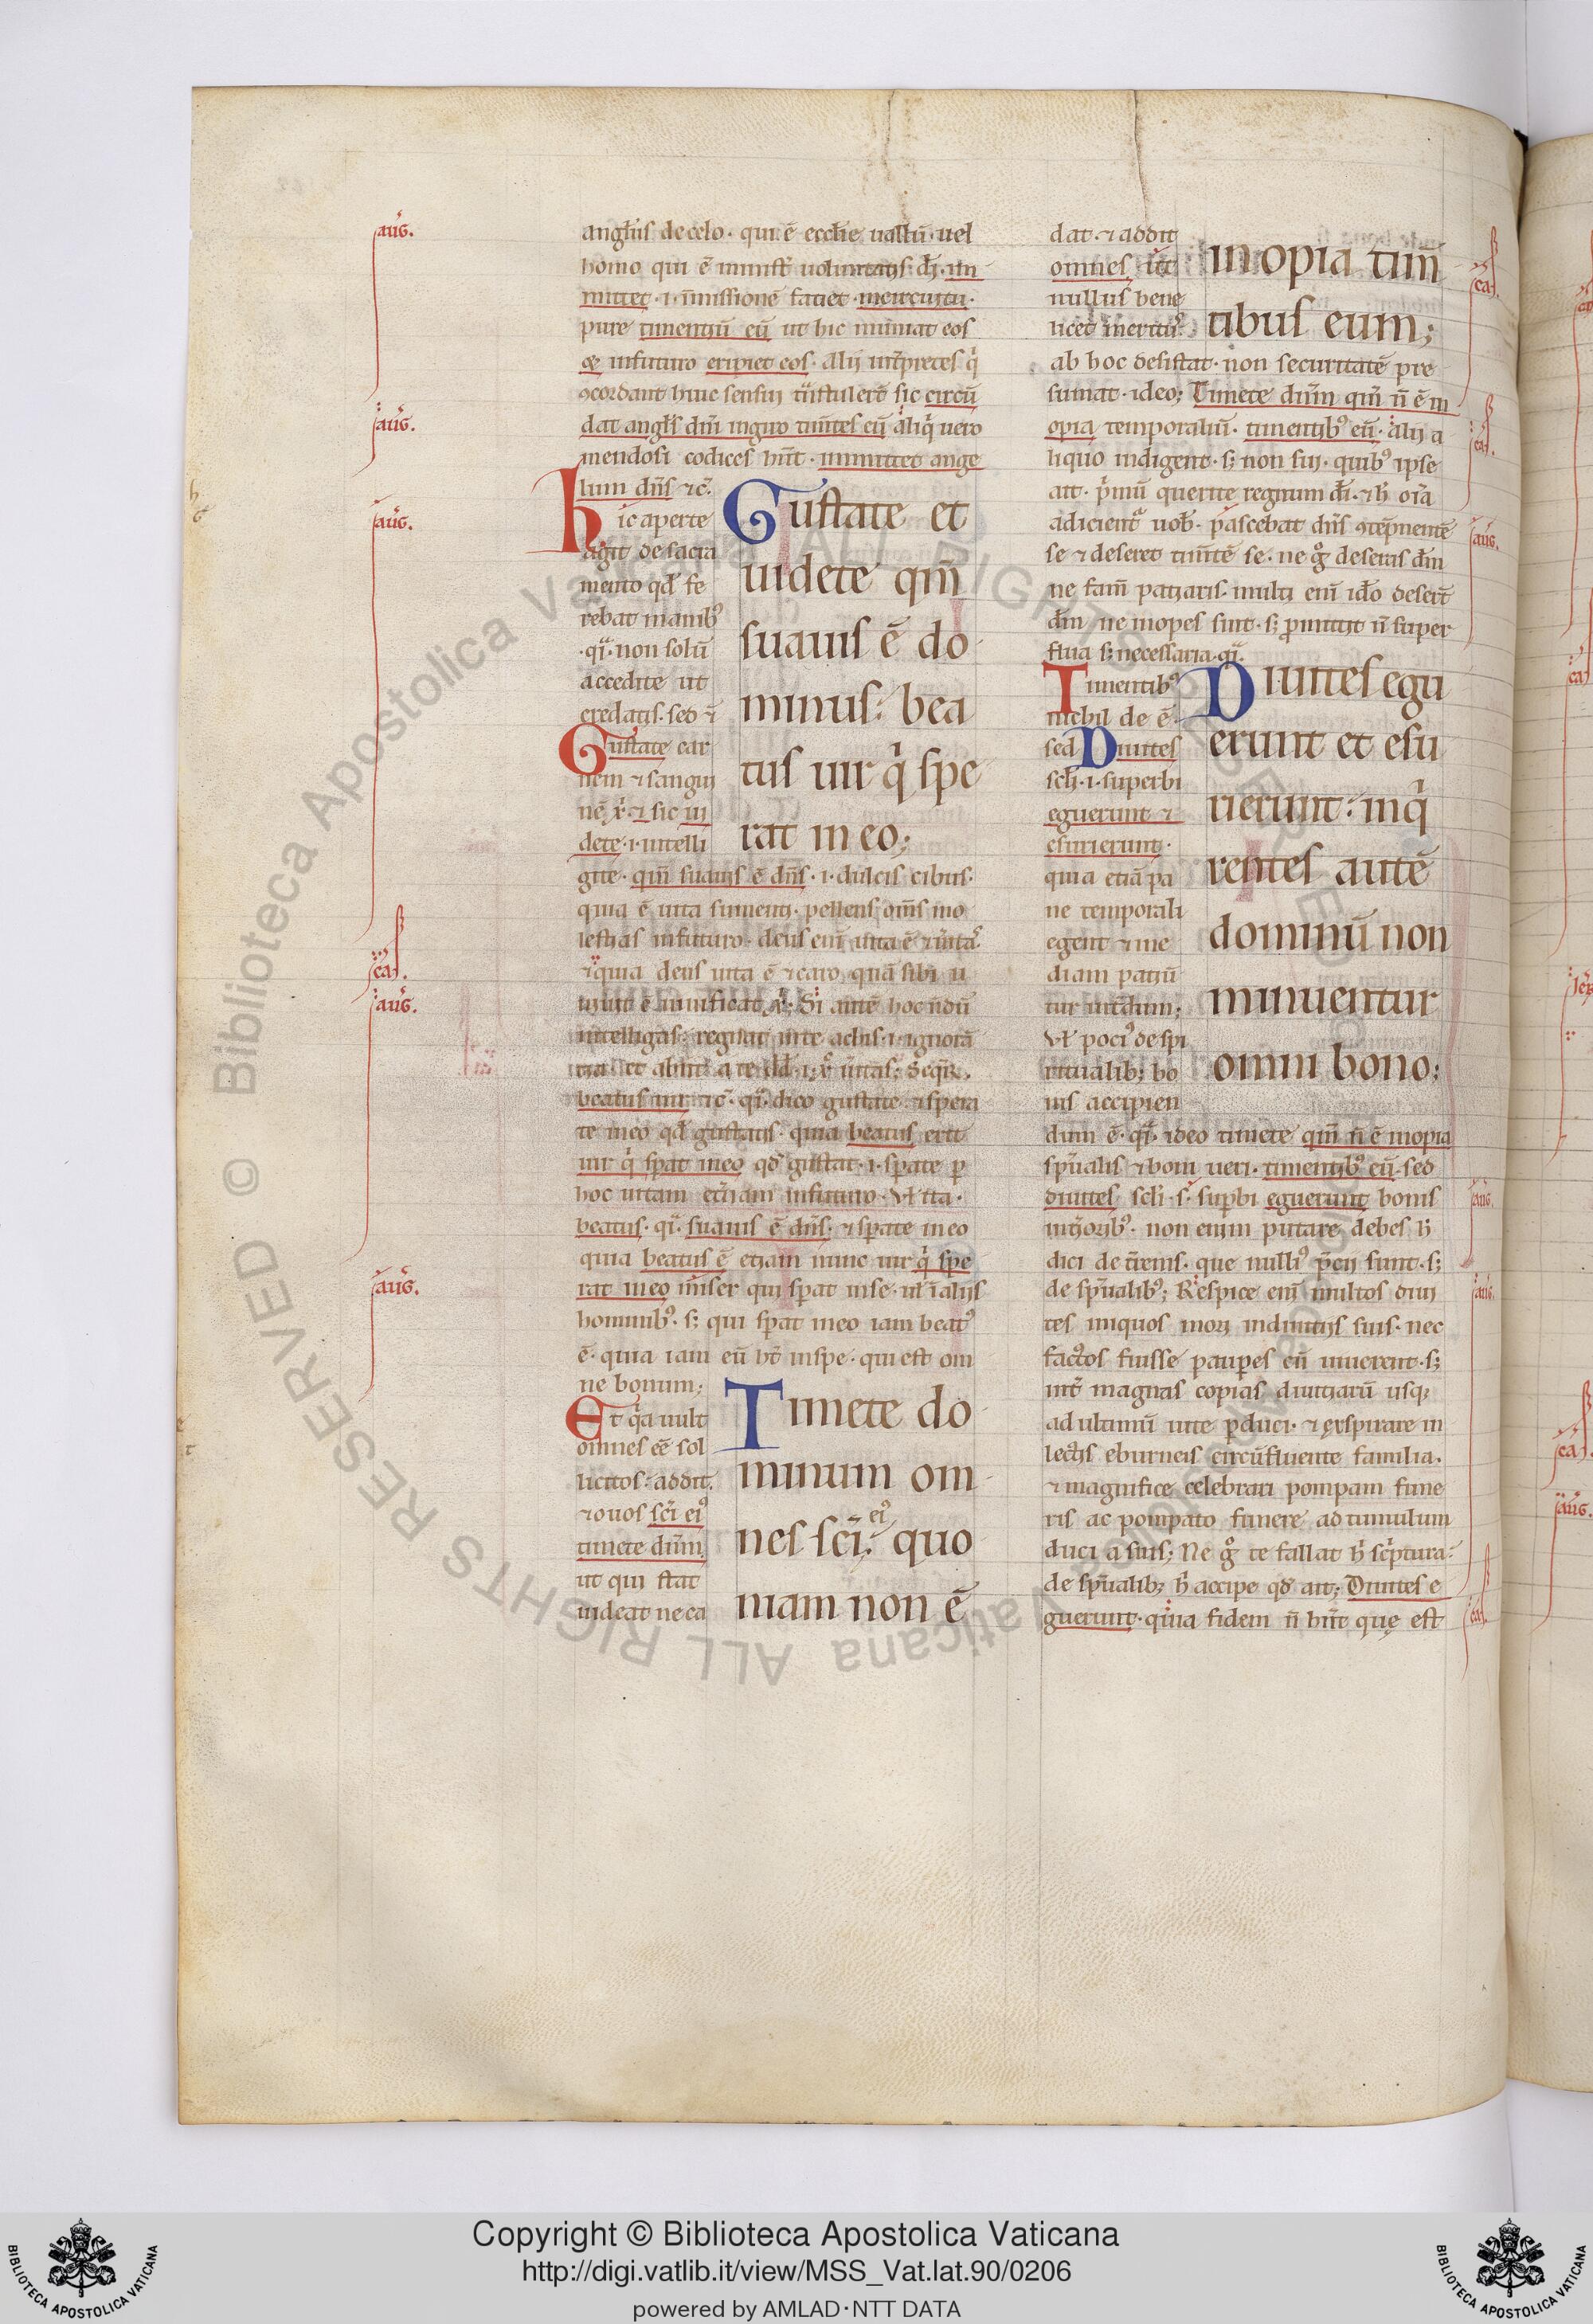 angl̄us de celo· qui ē eccl̄ie uallū· uel
homo qui ē minist̄ uoluntatis· d̄i· im
mittet· i· īmissionē faciet
pure timentiū eū ut hic muniat eos
infuturo eripiet eos· Alij int̄pretes q̓
ꝯcordant huic sensui sic circū
dat angl̄s dn̄i ingiro tim̄tes eū aliq̓ uero
mendosi codices hn̄t· inmittet ange
lum dn̄s ⁊c̄·
hic aperte
agit de sacra
mento qd̄ fe
rebat manibꝰ
·q̄i· non solū
accedite ut
credatis· sed ⁊
Gustate car
nem ⁊ sangui
nē x̄· ⁊ sic ui
dete· i· intelli
gite· qm̄ suauis ē dn̄s· i· dulcis cibus·
quia ē uita sumenti· pellens om̄s mo
lestias infuturo· deus enī uita ē
⁊ quia deus uita ē ⁊ caro quā sibi u
niuit ē uiuificatᷓ· Si autē hoc n̄dū
intelligas· regnat inte achis· i· ignorā
tia
beatus uir ⁊c̄· q̄i· dico gustate ⁊ spera
te ineo qd̄ gustatis· quia beatus erit
uir q̓ sp̄at ineo qd̄ gustat· i· sp̄ate p̄
hoc uitam et̄nam infuturo· Vl̄ ita·
beatus· q̄i· suauis ē dn̄s· ⁊ sp̄ate ineo
quia beatus ē etiam nunc uir q̓ spe
rat ineo miser qui sp̄at inse· ul̄ ī alijs
hominibꝰ· sꝫ qui sp̄at ineo iam beatꝰ
ē· quia iam eū hēt inspe· qui est om
ne bonum;
Et q̄a uult
omnes ēē sol
licitos· addit
⁊ o uos sc̄i eiꝰ
timete dn̄m
ut qui stat
uideat ne ca
Gustate et
uidete qm̄
suauis ē do
minus: bea
tus uir q̓ spe
rat in eo;
Timete do
minum om
nes sc̄i eiꝰ quo
niam non ē
dat· ⁊ addit
omnes ut
nullus bene
licet meritus
ab hoc desistat· non securitatē pre
sumat· ideo; Timete dn̄m qm̄ n̄ ē in
opia temporaliū· timentibꝰ eū· alij a
liquo indigent· sꝫ non sui· quibꝰ ipse
ait· p̓mū querite regnum d̄i· ⁊ h̄ oīa
adicientᷓ uob̄· pascebat dn̄s ꝯtēpnente
se ⁊ deseret tim̄tē se· ne gͦ deseras dm̄
ne famē patiaris· multi enī ideo deserūt
dm̄ ne inopes sint· sꝫ promittit n̄ super
flua sꝫ necessaria· q̄i·
Timentibꝰ
nichil de ē
sed Diuites
scl̄i· i· superbi
eguerunt ⁊
esurierunt·
quia etiā pa
ne temporali
egent ⁊ ine
diam patiū
tur int̄dum;
Vl̄ potiꝰ de spi
ritualibꝫ bo
nis accipien
dum ē· q̄i· ideo timete qm̄ n̄ ē inopia
sp̄ualis ⁊ boni ueri· timentibꝰ eū· sed
diuites scl̄i· s· supbi eguerunt bonis
int̄ioribꝰ· non enim putare debes h̄
dici de t̄renis· que nulliꝰ p̄cij sunt· sꝫ
de sp̄ualibꝰ; Respice enī multos diui
tes iniquos mori indiuitijs suis· nec
factos fuisse paupes cū uiuerent· sꝫ
int̄ magnas copias diuitiarū usqꝫ
ad ultimū uite ꝑduci· ⁊ exspirare in
lectis eburneis circūfluente familia·
⁊ magnifice celebrari pompam fune
ris ac pompato funere ad tumulum
duci a suis; Ne gͦ te fallat h̄ sc̓ptura·
de sp̄ualibꝫ h̄ accipe qd̄ ait; Diuites e
guerunt· quia fidem n̄ hn̄t que est
inopia tim̄
tibus eum;
Diuites egu
erunt et esu
rierunt: inq̓
rentes autē
dominū non
minuentur
omni bono:
aug̓·
aug̓·
aug̓·
ca
aug̓·
aug̓·
ca
ca
aug̓·
aug̓·
aug̓·
ca
Copyright © Biblioteca Apostolica Vaticana
http://digi.vatlib.it/view/MSS_Vat.lat.90/0206
powered by AMLAD·NTT DATA
© Biblioteca Apostolica Vaticana ALL RIGHTS RESERVED
BIBLIOTECA APOSTOLICA VATICANA
BIBLIOTECA APOSTOLICA VATICANA